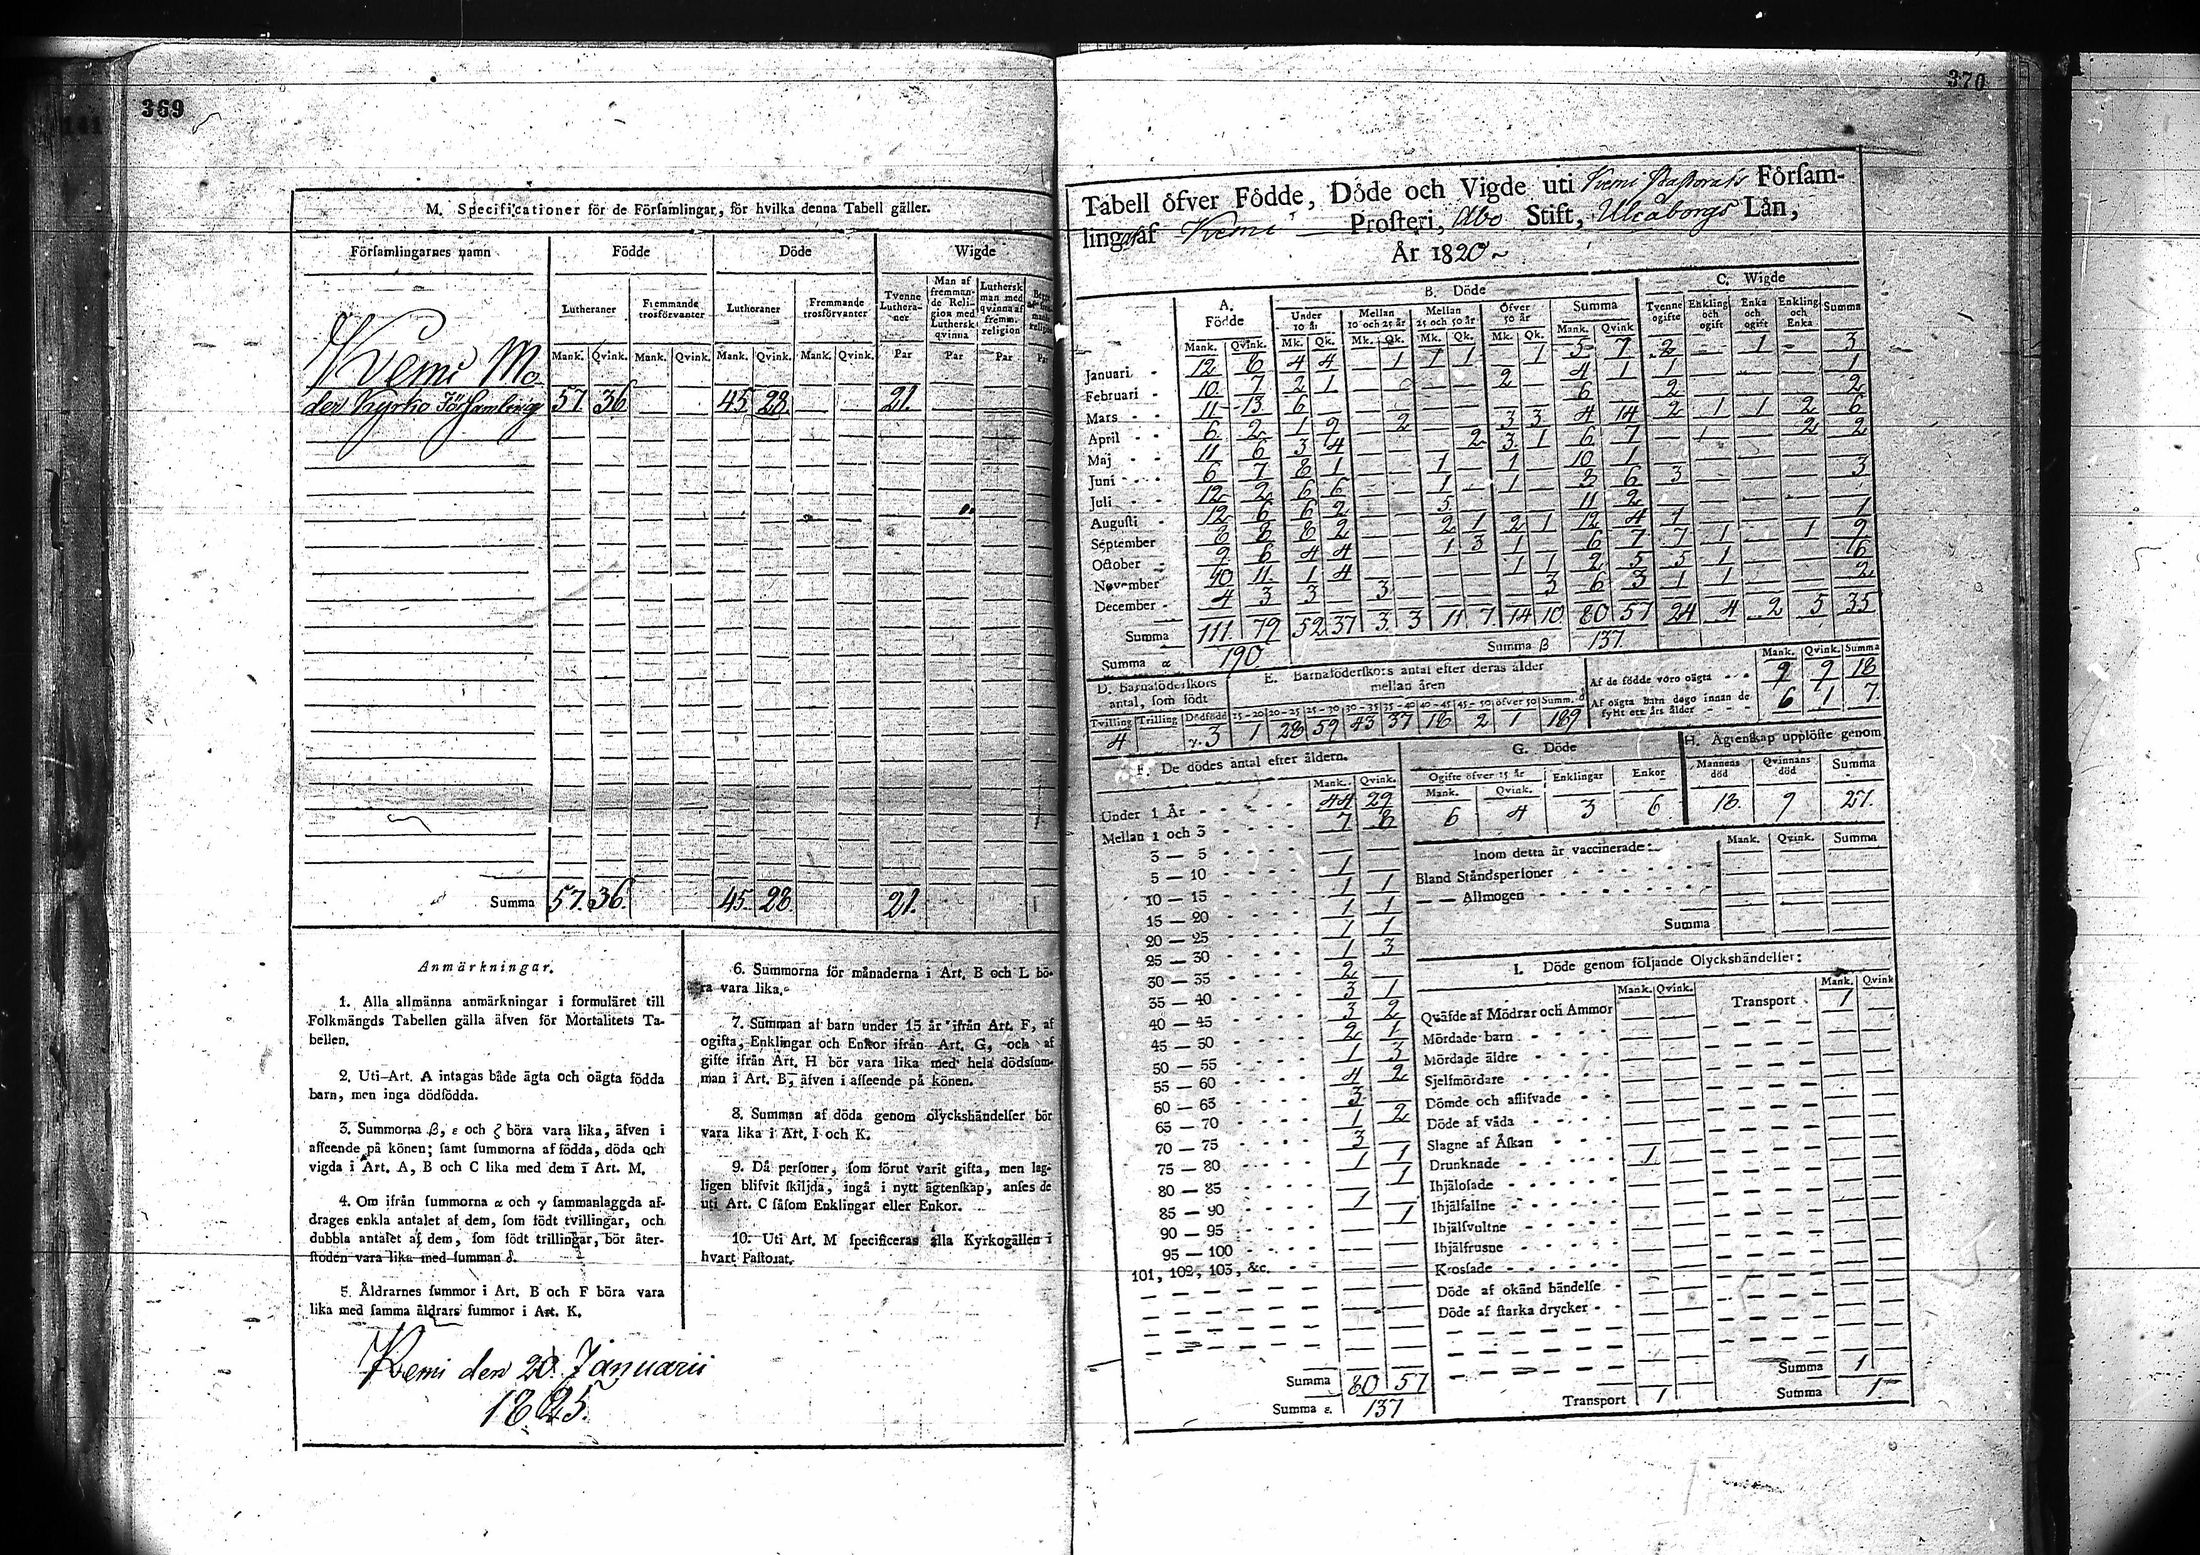 369
M. Specificationer för de Församlingar, för hvilka denna Tabell gäller.
Församlingarnes namn Födde Döde Wigde
Lutheraner Fremmande trosförvanter Lutheraner Fremmande trosförvanter Tvenne Lutheraner Man af fremmande Religion med Luthersk qvinna Luthersk man med qvinna af fremm. religion
Mank. Qvink. Mank. Qvink. Mank. Qvink. Mank. Qvink. Par Par Par Par
Kemi Mo
der Kyrko Församling 57 36 45 28. 21.
Summa 57. 36. 45. 28. 21.
Anmärkningar.
1. Alla allmänna anmärkningar i formuläret till
Folkmängds Tabellen gälla äfven för Mortalitets Ta-
bellen.
2. Uti Art. A intagas både ägta och oägta födda
barn, men inga dödfödda.
3. Summorna β, ε och ζ böra vara lika, äfven i
afseende på könen; samt summorna af födda, döda och
vigda i Art. A, B och C lika med dem i Art. M.
4. Om ifrån summorna α och γ sammanlaggda af-
drages enkla antalet af dem, som födt tvillingar, och
dubbla antalet af dem, som födt trillingar, bör åter-
stoden vara lika med summan δ.
5. Åldrarnes summor i Art. B och F böra vara
lika med samma åldrars summor i Art. K.
6. Summorna för månaderna i Art. B och L bö-
ra vara lika.
7. Summan af barn under 15 år ifrån Art. F, af
ogifta, Enklingar och Enkor ifrån Art. G, och af
gifte ifrån Art. H bör vara lika med hela dödssum-
man i Art. B, äfven i afseende på könen.
8. Summan af döda genom olyckshändelser bör
vara lika i Art. I och K.
9. Då personer, som förut varit gifta, men lag-
ligen blifvit skiljda, ingå i nytt ägtenskap, anses de
uti Art. C såsom Enklingar eller Enkor.
10. Uti Art. M specificeras alla Kyrkogällen i
hvart Pastorat.
Kemi den 20. Januarii
1825.
370
Tabell öfver Födde, Döde och Vigde uti Kemi Pastorats Försam-
lingar af Kemi Prosteri, Åbo Stift, Uleåborgs Län,
År 1820
A. Födde B. Döde C. Wigde
Under 10 år Mellan 10 och 25 år Mellan 25 och 50 år Öfver 50 år Summa Tvenne ogifte Enkling och ogift Enka och ogift Enkling och Enka Summa
Mank. Qvink. Mk. Qk. Mk. Qk. Mk. Qk. Mk. Qk. Mank. Qvink
Januari 12 8 4 4 1 1 1 1 5 7 2 1 3
Februari 10 7 2 1 2 4 1 1 1
Mars 11 13 6 6 2 2
April 6 2 1 9 2 3 3 4 14 2 1 1 2 6
Maj 11 6 3 4 2 3 1 6 7 2 2
Juni 6 7 8 1 1 1 10 1
Juli 12 2 6 6 1 1 8 6 3 3
Augusti 12 6 6 2 5 11 2
September 8 8 8 2 2 1 2 1 12 4 1 1
October 9 6 4 4 1 3 1 6 7 7 1 1 9
November 10 11 1 4 1 1 2 5 5 1 6
December 4 3 3 3 3 6 3 1 1 2
Summa 111 79 52 37 3 3 11 7 14 10 80 57 24 4 2 5 35
Summa α 190 Summa β 137
D. Barnaföderskors antal, som födt
Tvilling Trilling Dödfödd
4 γ. 3
E. Barnaföderskors antal efter deras ålder mellan åren
15—20 20—25 25—30 30—35 35—40 40—45 45—50 öfver 50 Summ. δ
1 28 59 43 37 18 2 1 189
Mank. Qvink. Summa
Af de födde voro oägta 9 9 18
Af oägta barn dogo innan de fyllt ett års ålder 6 1 7.
F. De dödes antal efter åldern.
Mank. Qvink.
Under 1 År 44 29
Mellan 1 och 3 7 8
3 — 5
5 — 10 1
10 — 15 1 1
15 — 20 1 1
20 — 25 1 1
25 — 30 1 3
30 — 35 2
35 — 40 3 1
40 — 45 3 2
45 — 50 2 1
50 — 55 1 3
55 — 60 4 2
60 — 65 3
65 — 70 1 2
70 — 75 3
75 — 80 1 1
80 — 85 1
85 — 90 1
90 — 95 1
95 — 100
101, 102, 103, &c.
Summa 80 57
Summa ε. 137
G. Döde
Ogifte öfver 15 år Enklingar Enkor
Mank. Qvink.
6 4 3 6
H. Ägtenskap upplöste genom
Mannens död Qvinnans död Summa
18 9 27.
Inom detta år vaccinerade: Mank. Qvink. Summa
Bland Ståndspersoner
— — Allmogen
Summa
I. Döde genom följande Olyckshändelser:
Mank. Qvink. Mank. Qvink
Qväfde af Mödrar och Ammor Transport 1
Mördade barn
Mördade äldre
Sjelfmördare
Dömde och aflifvade
Döde af våda
Slagne af Åskan
Drunknade 1
Ihjälosade
Ihjälfallne
Ihjälsvultne
Ihjälfrusne
Krossade
Döde af okänd händelse
Döde af starka drycker
Summa 1
Transport 1 Summa 1